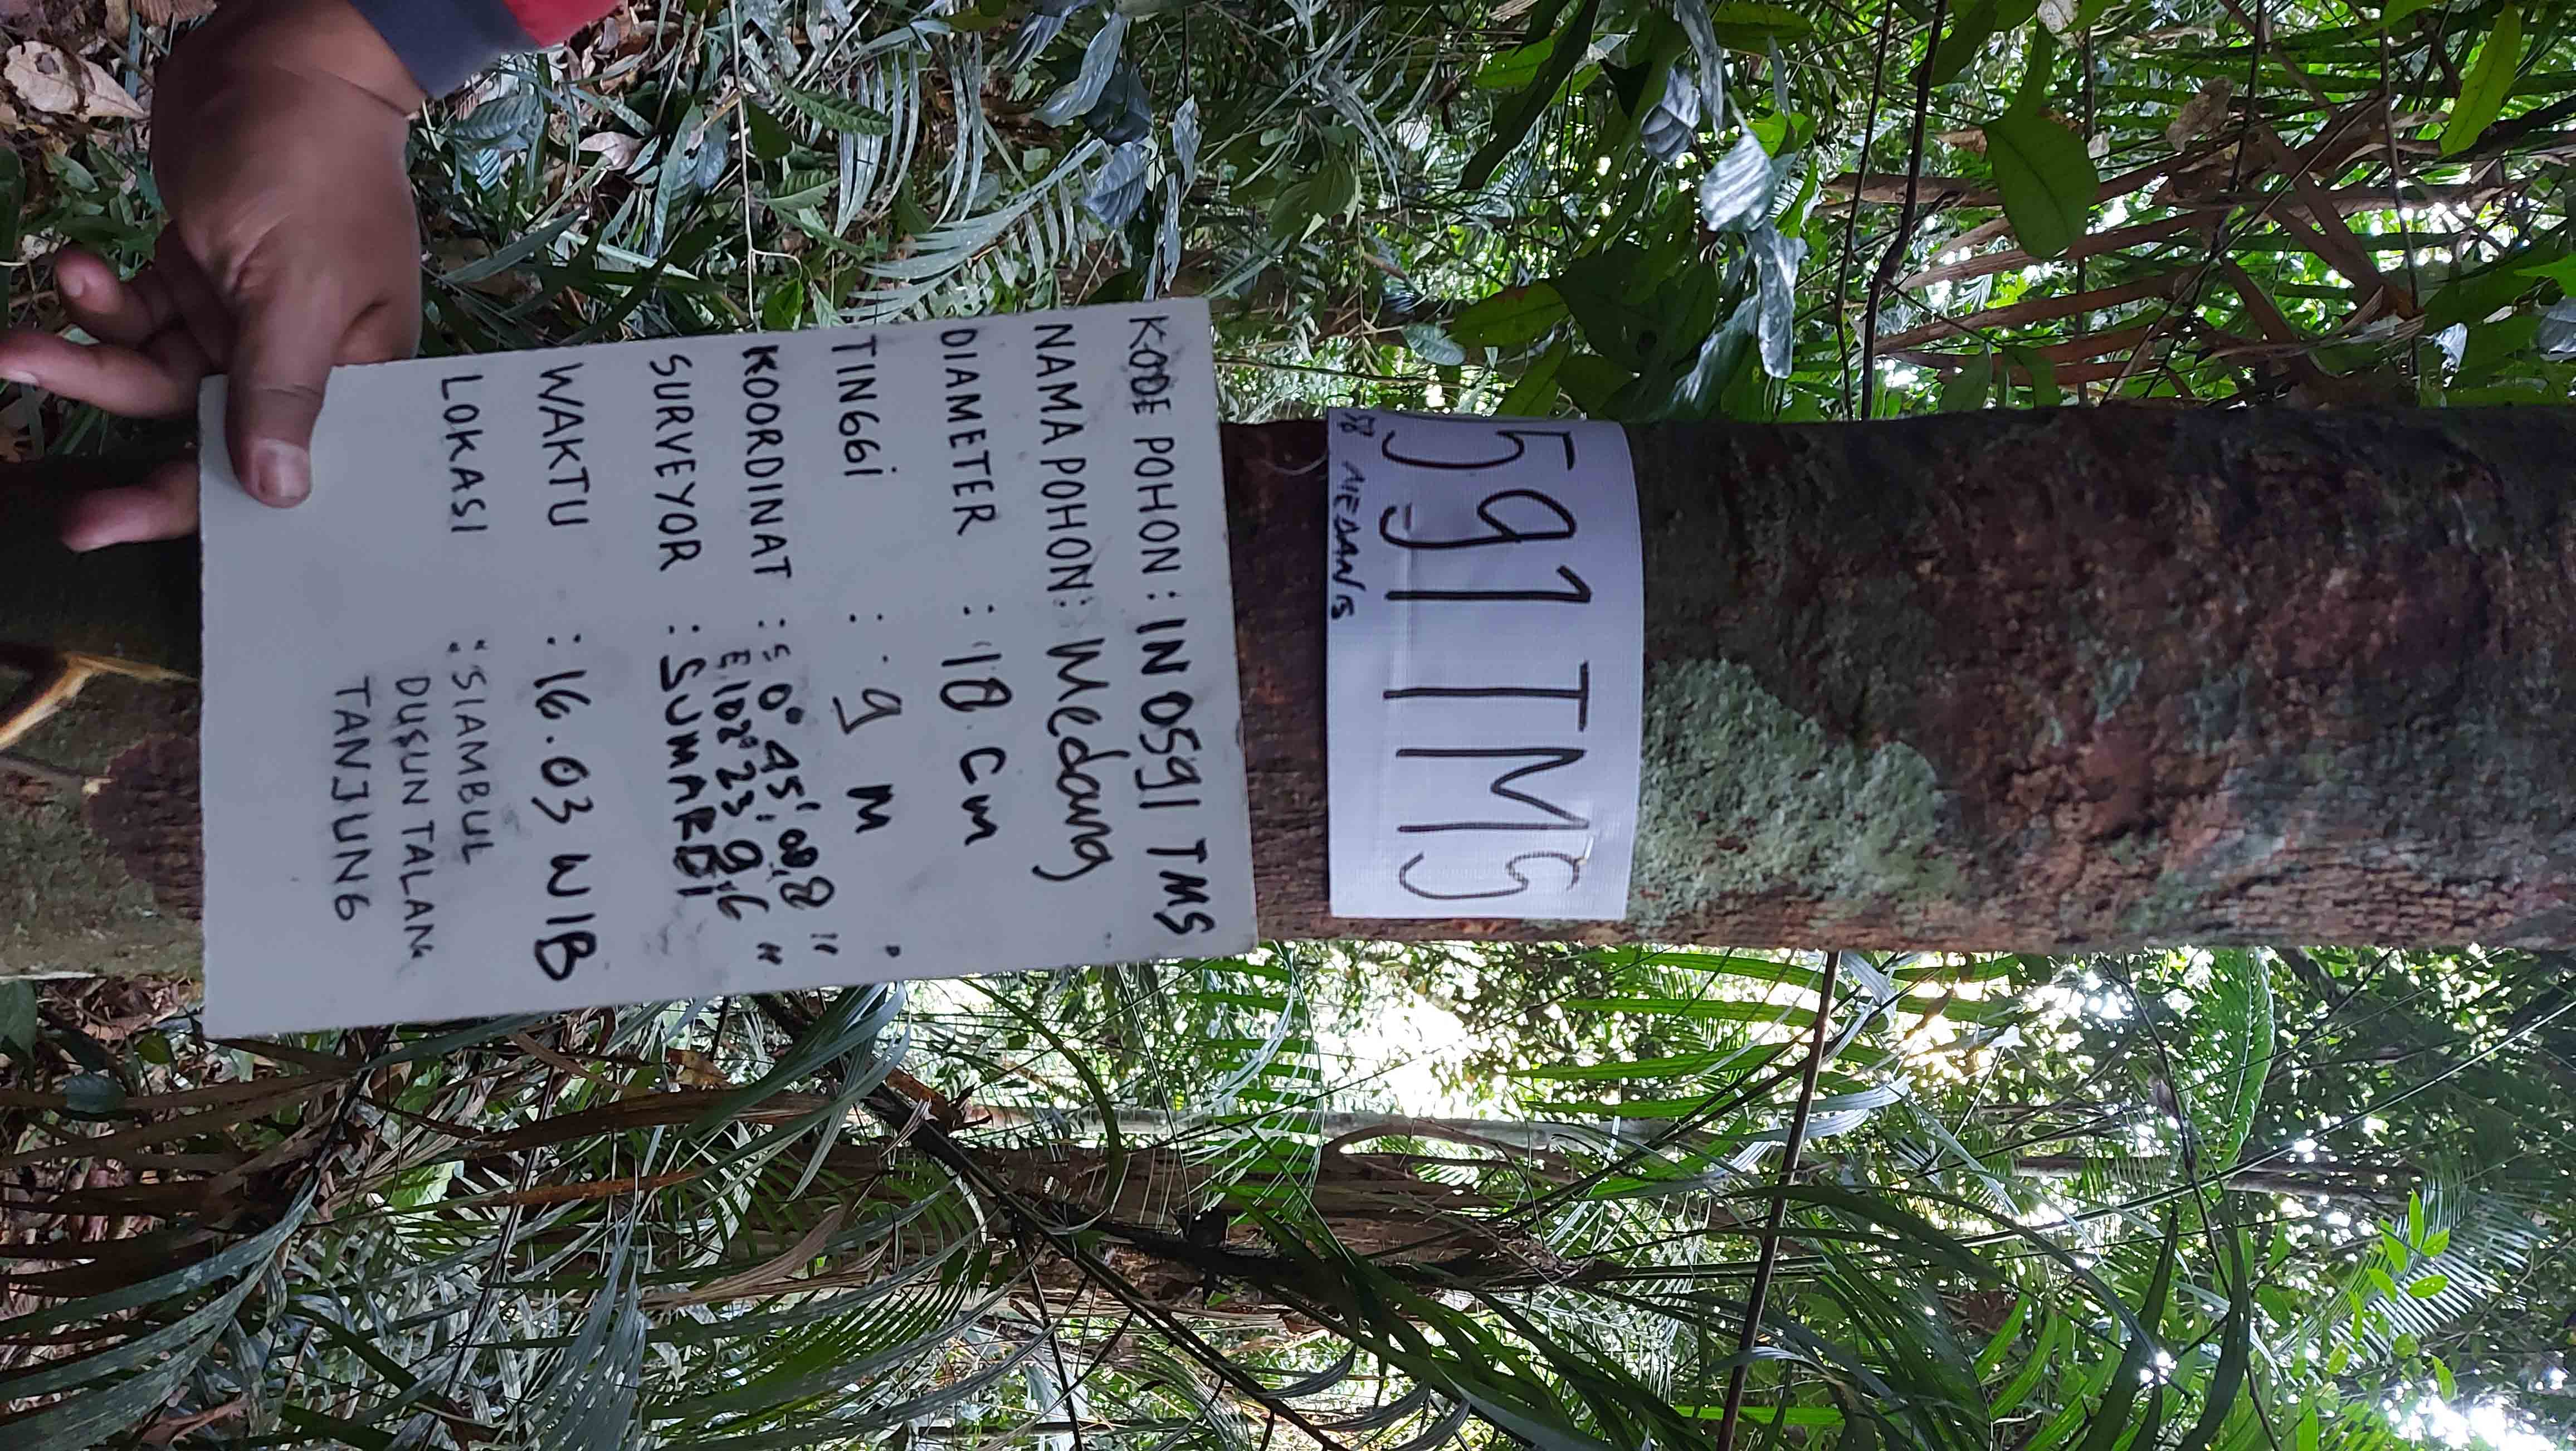 591 TMS
KODE POHON : IN 0591 TMS
NAMA POHON : Medang
DIAMETER : 18 cm
TINGGI : 9 m
KOORDINAT : S 0° 45' 09.8"
E 102° 23' 9.6"
SURVEYOR : SUMARDI
WAKTU : 16.03 WIB
LOKASI : SIAMBUL
DUSUN TALANG
TANJUNG